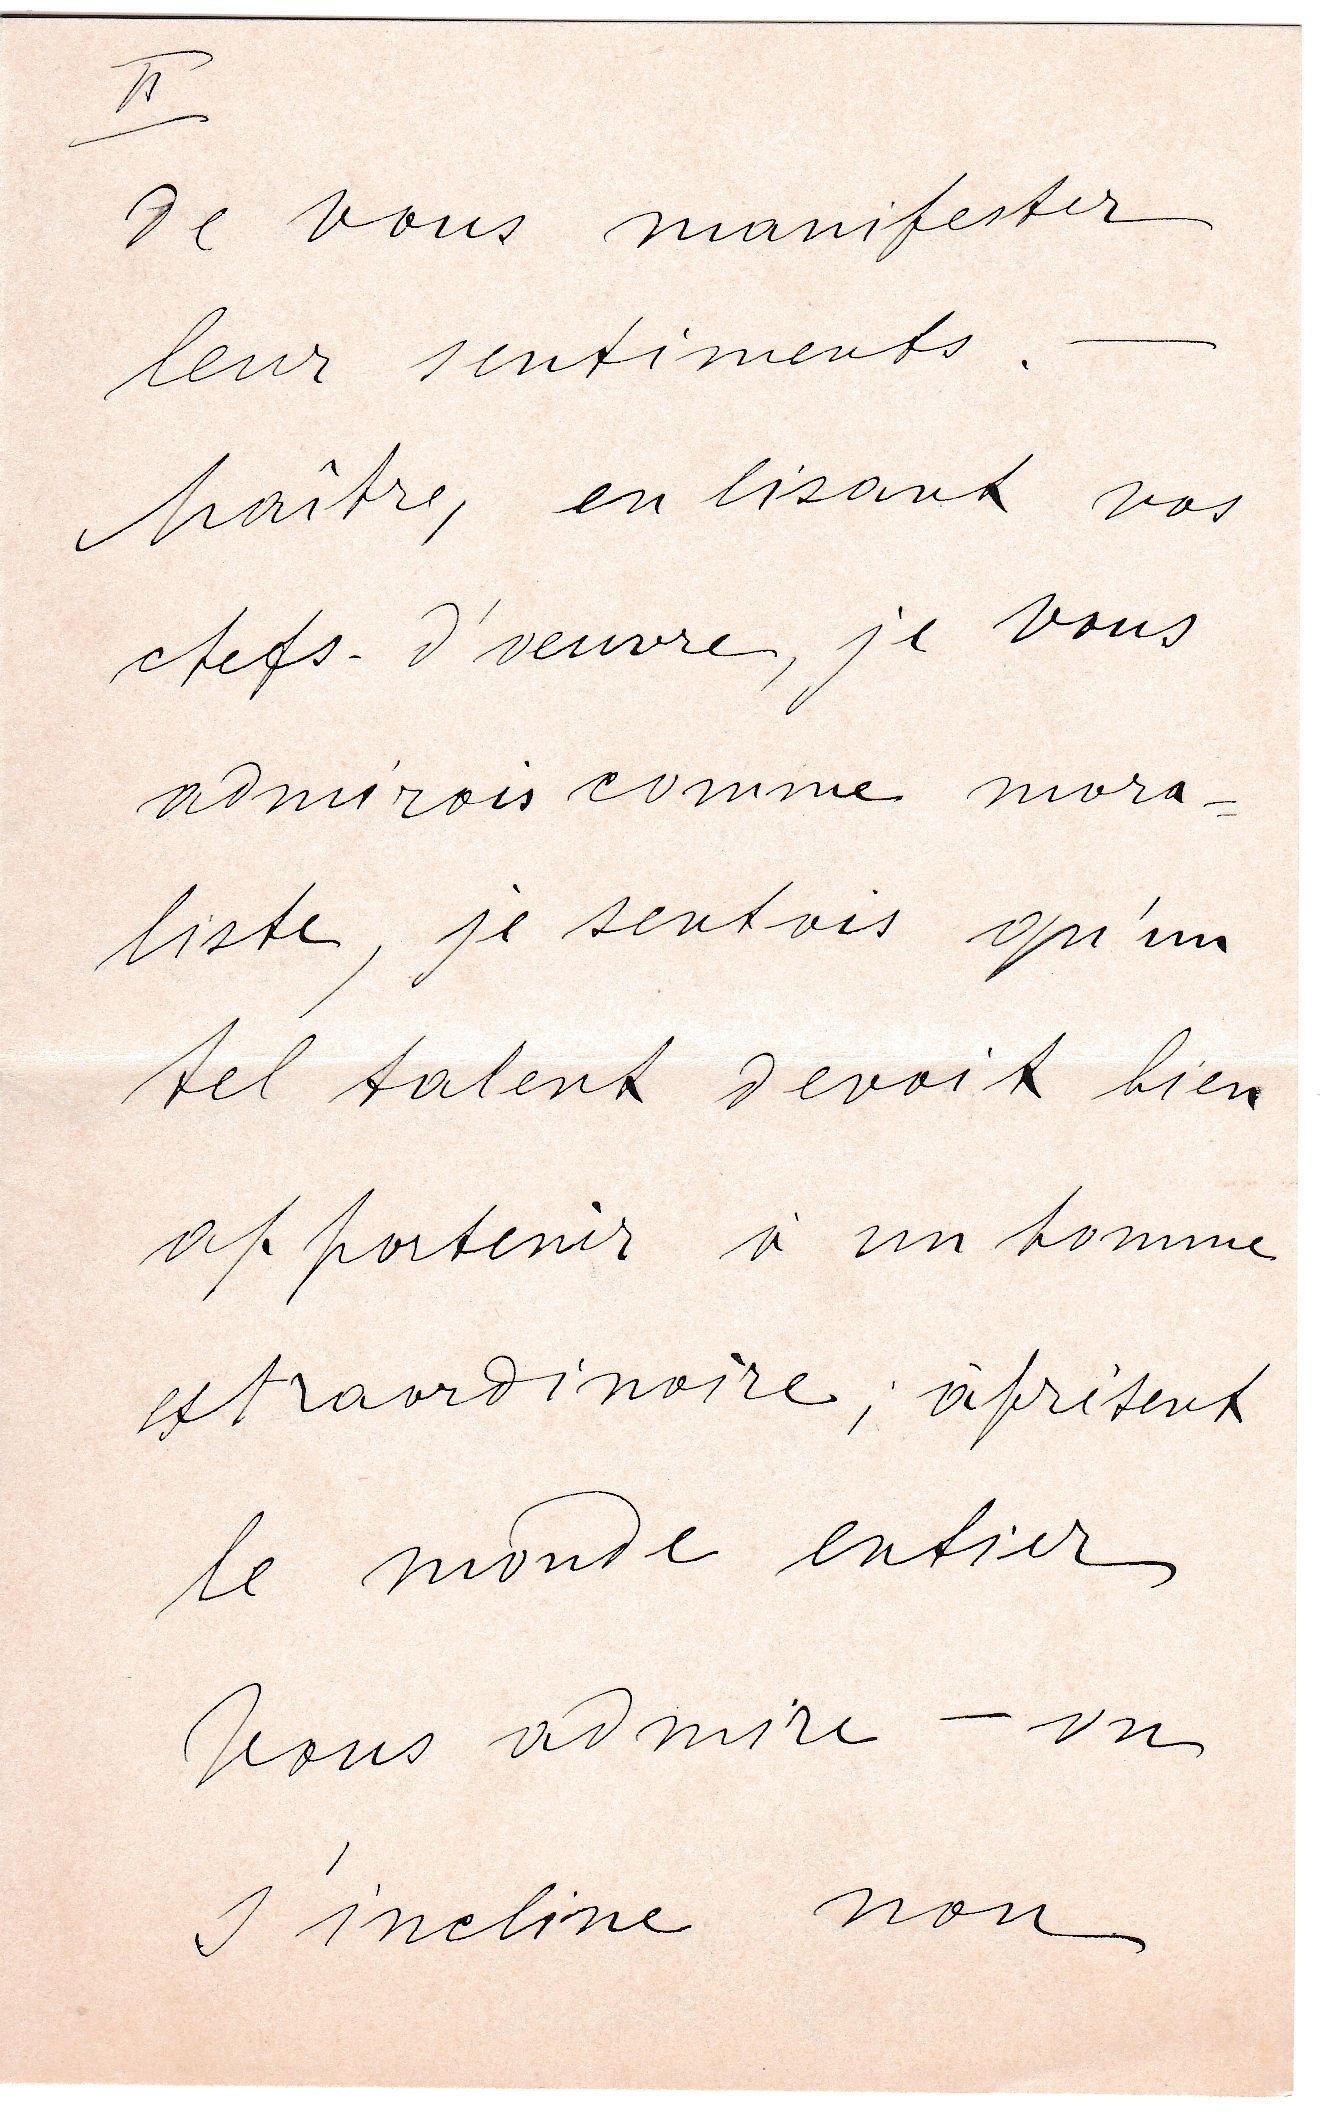 II
de vous manifester
leur sentiments. —
Maître, en lisant vos
chefs-d'oeuvre, je vous
admirais comme mora-
liste, je sentais qu'un
tel talent devait bien
appartenir à un homme
extraordinaire; àprésent
le monde entier
vous admire — on
s'incline non